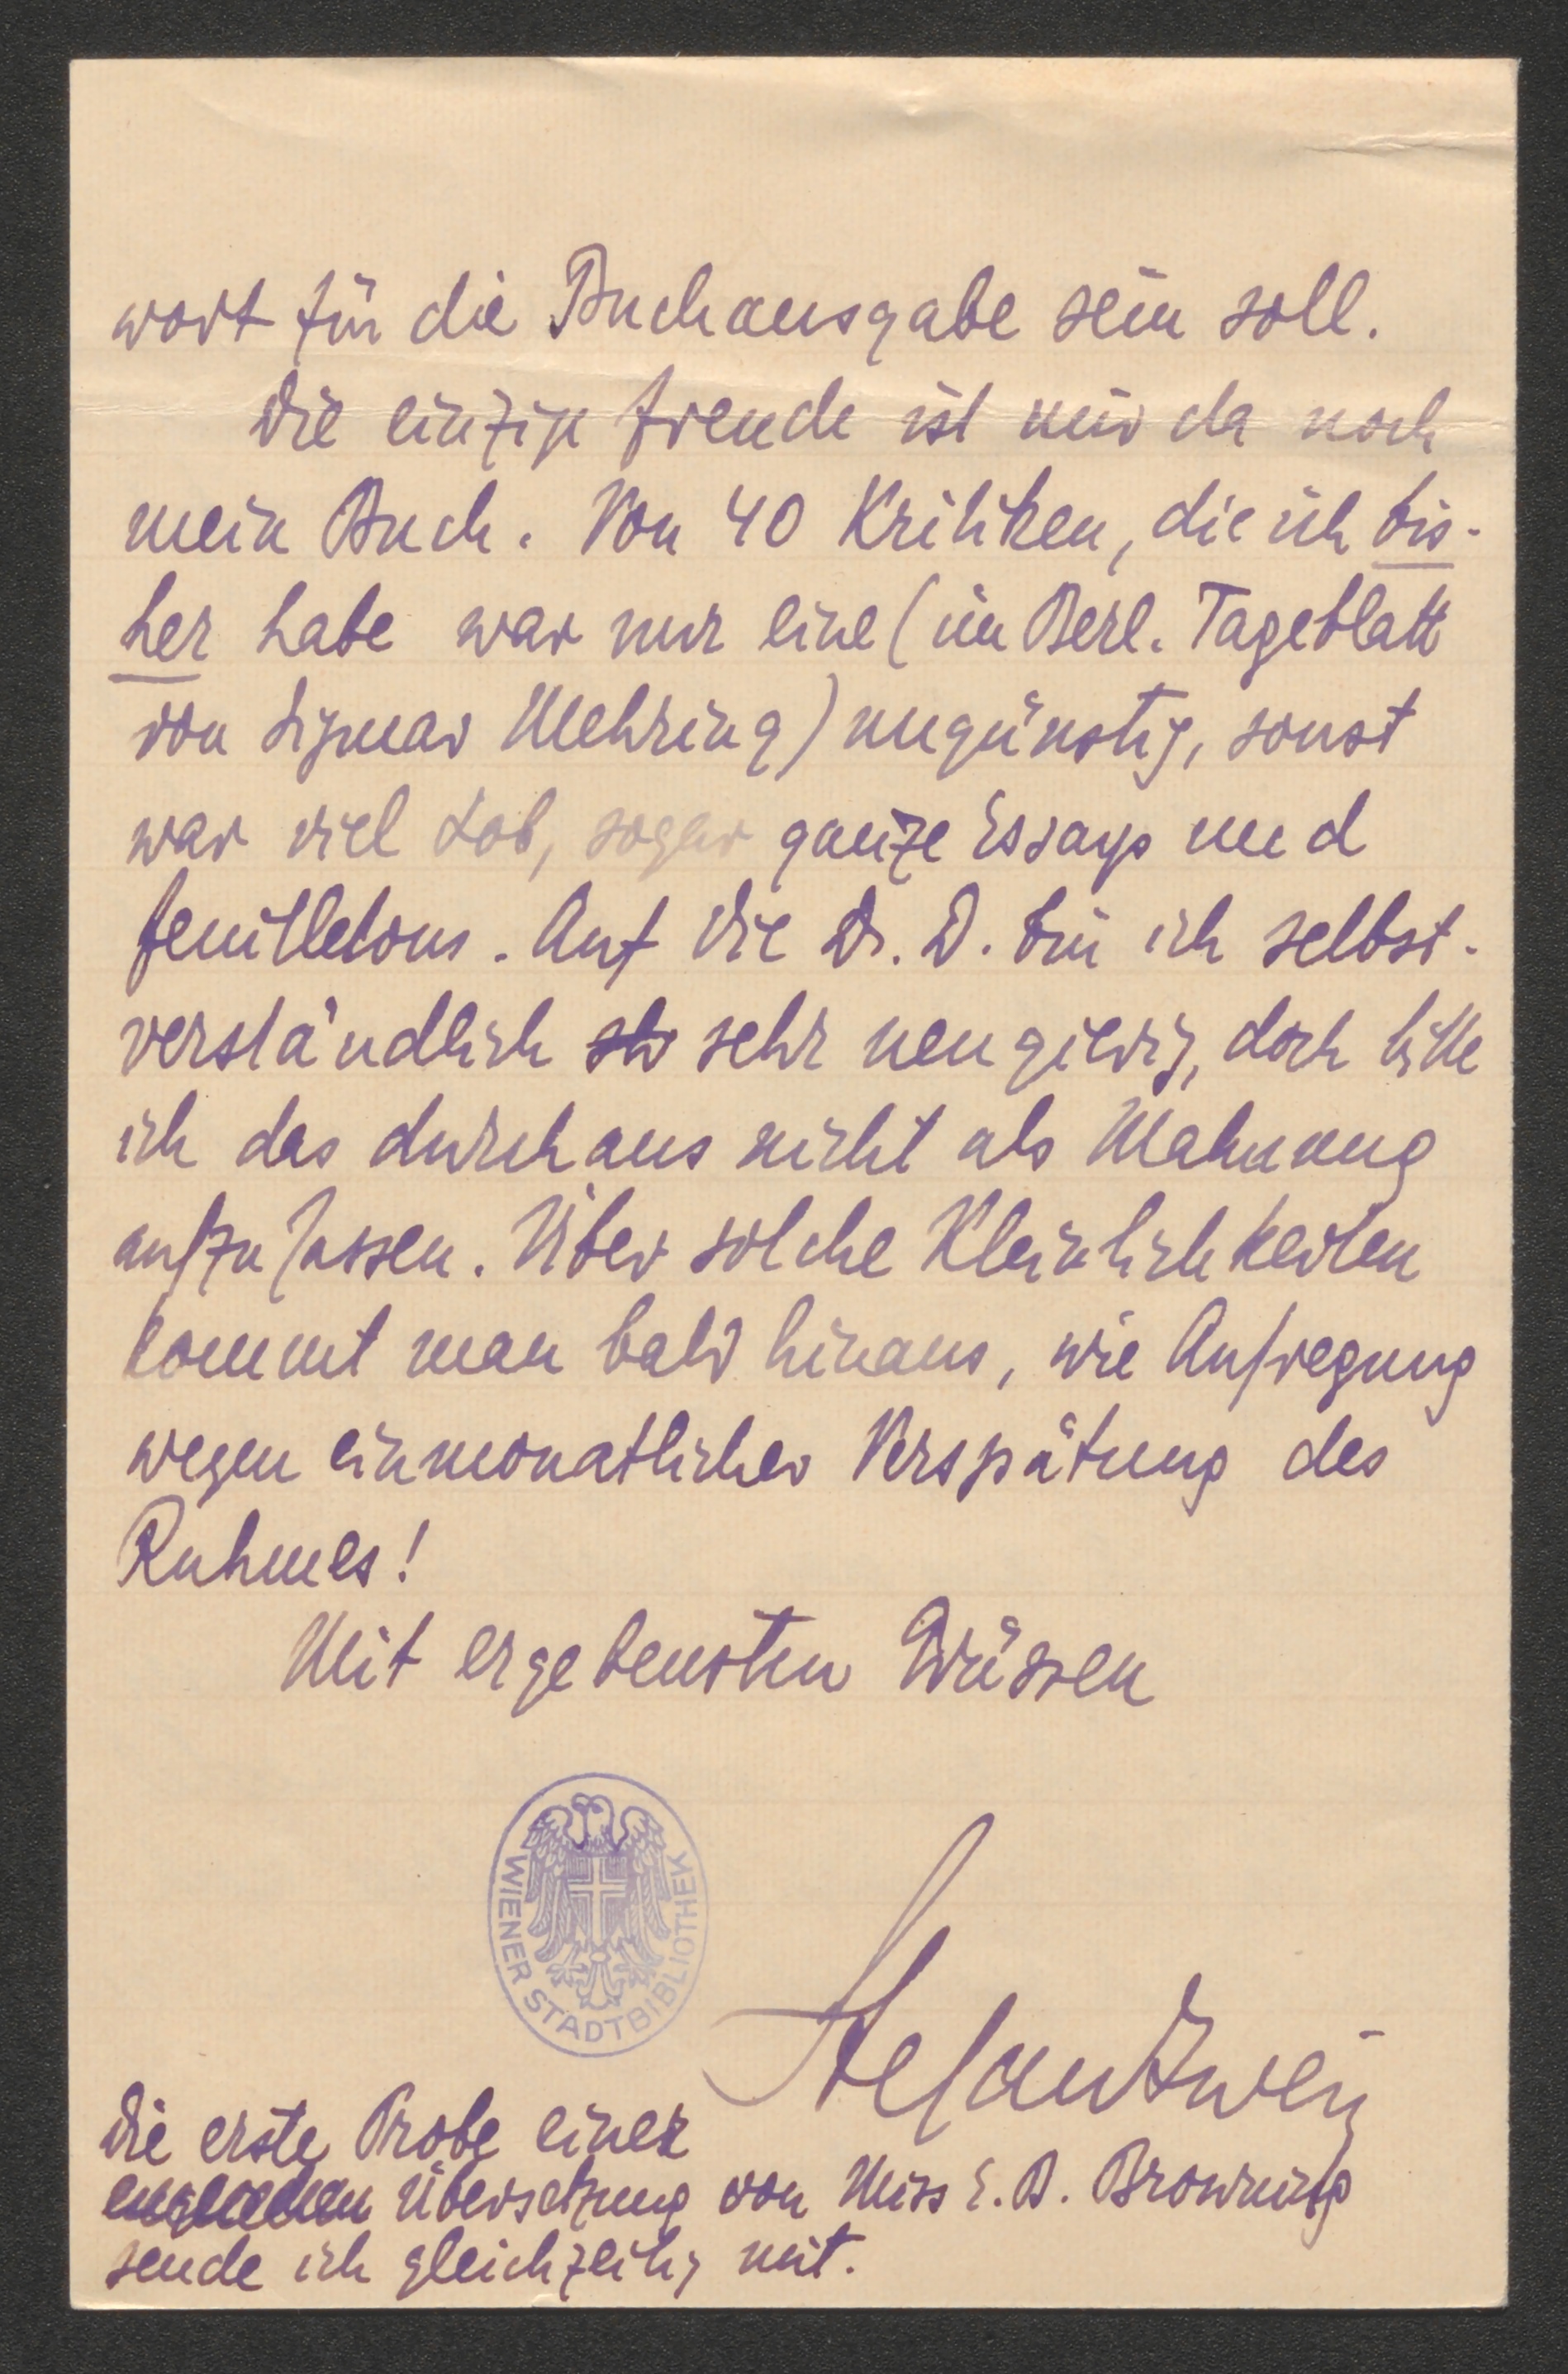 wort für die Buchausgabe sein soll.
Die einzige Freude ist mir da noch
mein Buch. Von 40 Kritiken, die ich bis-
her habe war nur eine (im Berl. Tageblatt
von Sigmar Mehring) ungünstig, sonst
war viel Lob, sogar ganze Essays und
Feuilletons. Auf die D. D. bin ich selbst-
verständlich sehr neugierig, doch bitte
ich das durchaus nicht als Mahnung
aufzufassen. Über solche Kleinlichkeiten
kommt man bald hinaus, wie Aufregung
wegen einmonatlicher Verspätung des
Ruhmes!
Mit ergebensten Grüssen
WIENER STADTBIBLIOTHEK
Stefan Zweig
Die erste Probe einer
Übersetzung von Miss E. B. Browning
sende ich gleichzeitig mit.